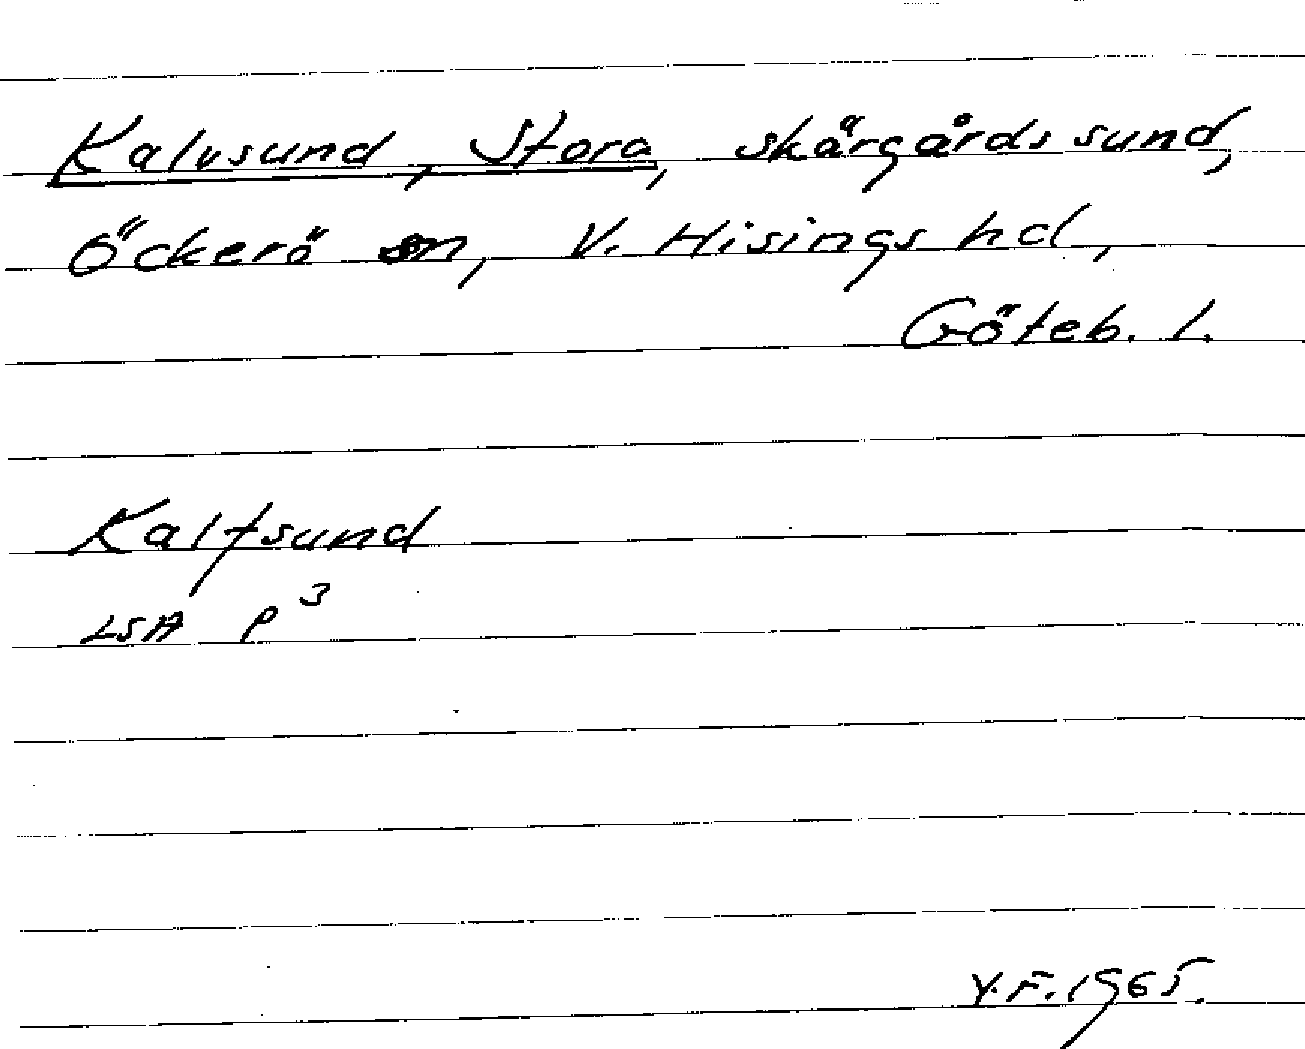 Kalvsund, Stora, skärgårdssund,
Öckerö sn, V. Hisings hd,
Göteb. l.
Kalfsund
LSA P³
Y.F. 1965.